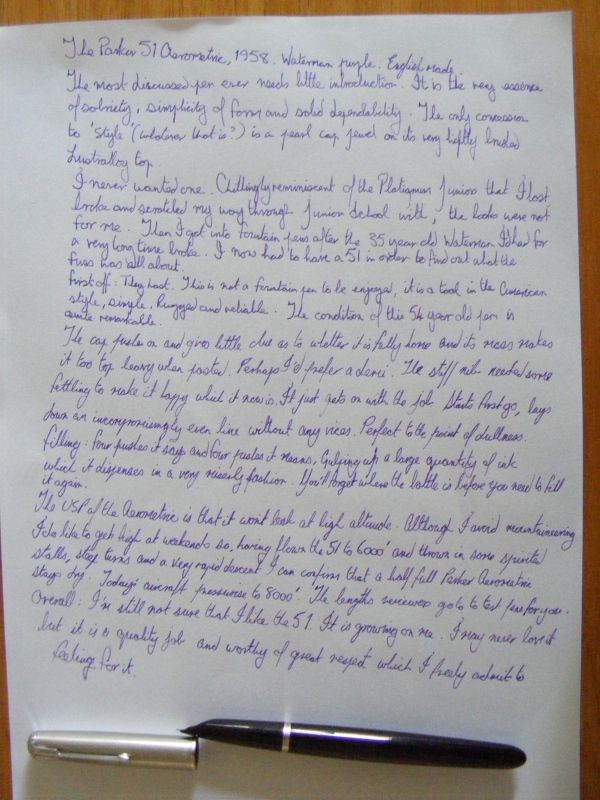 The Parker 51 Aerometric, 1958. Waterman purple. English made.
The most discussed pen ever needs little introduction. It is the very essence
of sobriety, simplicity of form and solid dependability. The only concession
to 'style' (whatever that is?) is a pearl cap jewel on its very lightly brushed
Lustralloy top.
I never wanted one. Chillingly reminiscent of the Platignum Juniors that I lost
broke and scratched my way through Junior School with, the looks were not
for me. Then I got into fountain pens after the 35 year old Waterman I'd had for
a very long time broke. I now had to have a 51 in order to find out what the
fuss was all about.
First off. They hoot. This is not a fountain pen to be enjoyed, it is a tool in the American
style, simple. Rugged and reliable. The condition of this 54 year old pen is
quite remarkable.
The cap pushes on and gives little clue as to whether it is fully home and its mass makes
it too top heavy when posted. Perhaps I'd prefer a demi. The stiff nib needed some
fettling to make it happy which it now is. It just gets on with the job. Starts first go, lays
down an uncompromisingly even line without any vices. Perfect to the point of dullness.
Filling: Four pushes it says and four pushes it means, Gulping up a large quantity of ink
which it dispenses in a very miserly fashion. You'll forget where the bottle is before you need to fill
it again.
The USP of the Aerometric is that it wont leak at high altitude. Although I avoid mountaineering
I do like to get high at weekends so, having flown the 51 to 6000' and thrown in some spirited
stalls, steep turns and a very rapid descent I can confirm that a half full Parker Aerometric
stays dry. Today's aircraft pressurise to 8000'. The lengths reviewers go to to test pens for you.
Overall: I'm still not sure that I like the 51. It is growing on me. I may never love it
but it is a quality job and worthy of great respect which I freely admit to
feeling for it.